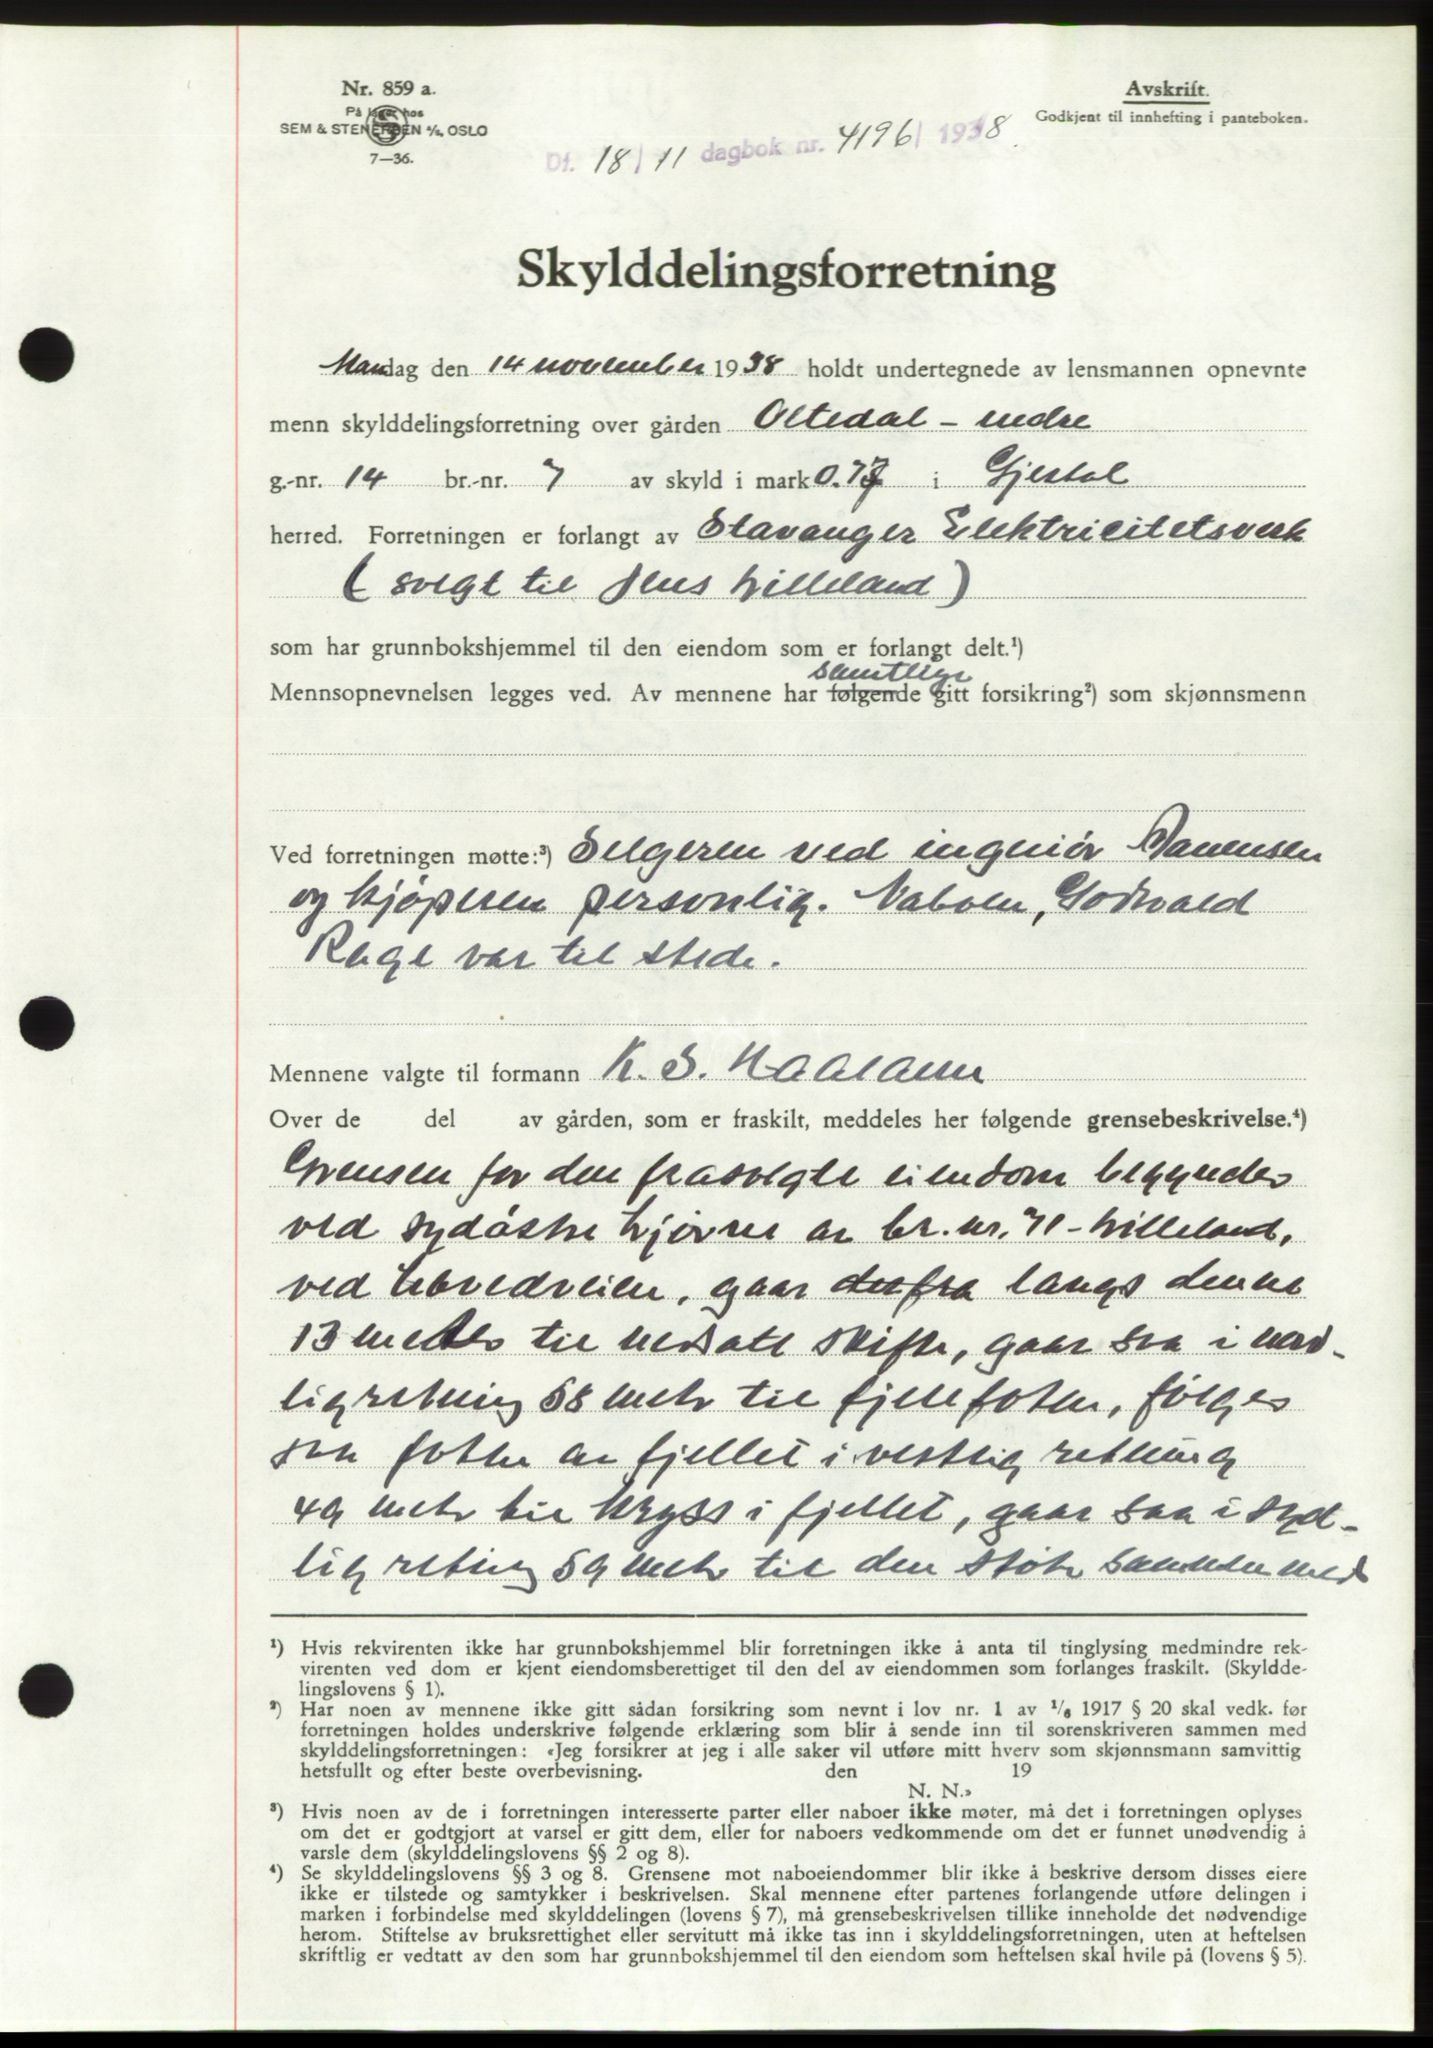 Nr. 859 a.
På lager hos
SEM & STENERSEN A/S, OSLO
7—36.
Avskrift.
Godkjent til innhefting i panteboken.
Df. 18/11 dagbok nr. 4196/1938.
Skylddelingsforretning
Mandag den 14 november 1938 holdt undertegnede av lensmannen opnevnte
menn skylddelingsforretning over gården Oltedal - nedre
g.-nr. 14 br.-nr. 7 av skyld i mark 0.77 i Gjestal
herred. Forretningen er forlangt av Stavanger Elektricitetsverk
(solgt til Jens Lilleland)
som har grunnbokshjemmel til den eiendom som er forlangt delt.¹)
samtlige
Mennsopnevnelsen legges ved. Av mennene har følgende gitt forsikring²) som skjønnsmenn
Ved forretningen møtte:³) Selgeren ved ingeniør
og kjøperen personlig. Naboen, Godtvald
Rage var til stede.
Mennene valgte til formann K. S. Haaland
Over de del av gården, som er fraskilt, meddeles her følgende grensebeskrivelse.⁴)
Grensen for den frasolgte eiendom begynder
ved sydøstre hjørne av br. nr. 71 - Lilleland,
ved hovedveien, gaar derfra langs denne
13 meter til nedsatt skifte, gaar saa i nord-
lig retning 58 meter til fjellfoten, følges
saa foten av fjellet i vestlig retning
49 meter til kryss i fjellet, gaar saa i syd-
lig retning 59 meter til den støter sammen med
¹) Hvis rekvirenten ikke har grunnbokshjemmel blir forretningen ikke å anta til tinglysing medmindre rek-
virenten ved dom er kjent eiendomsberettiget til den del av eiendommen som forlanges fraskilt. (Skyldde-
lingslovens § 1).
²) Har noen av mennene ikke gitt sådan forsikring som nevnt i lov nr. 1 av ¹/₆ 1917 § 20 skal vedk. før
forretningen holdes underskrive følgende erklæring som blir å sende inn til sorenskriveren sammen med
skylddelingsforretningen: «Jeg forsikrer at jeg i alle saker vil utføre mitt hverv som skjønnsmann samvittig
hetsfullt og efter beste overbevisning. den 19
N. N.»
³) Hvis noen av de i forretningen interesserte parter eller naboer ikke møter, må det i forretningen oplyses
om det er godtgjort at varsel er gitt dem, eller for naboers vedkommende om det er funnet unødvendig å
varsle dem (skylddelingslovens §§ 2 og 8).
⁴) Se skylddelingslovens §§ 3 og 8. Grensene mot naboeiendommer blir ikke å beskrive dersom disses eiere
ikke er tilstede og samtykker i beskrivelsen. Skal mennene efter partenes forlangende utføre delingen i
marken i forbindelse med skylddelingen (lovens § 7), må grensebeskrivelsen tillike inneholde det nødvendige
herom. Stiftelse av bruksrettighet eller servitutt må ikke tas inn i skylddelingsforretningen, uten at heftelsen
skriftlig er vedtatt av den som har grunnbokshjemmel til den eiendom som heftelsen skal hvile på (lovens § 5).